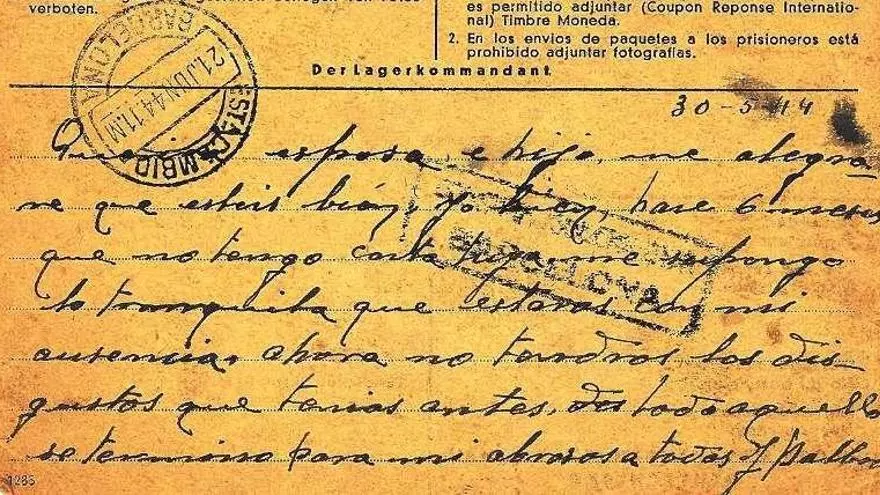 verboten.
es permitido adjuntar (Coupon Reponse Internatio-
nal) Timbre Moneda.
2. En los envios de paquetes a los prisioneros está
prohibido adjuntar fotografias.
Der Lagerkommandant
BARCELONA
21.JUN 44.11.M
ESTAF CAMBIO
30-5-44
esposa, e hijo, me alegra-
re que esteis bien, yo bien, hace 6 meses
que no tengo carta tuya, me supongo
lo tranquila que estaras con mi
ausencia, ahora no tendras los dis-
gustos que tenias antes, todo aquello
se termino para mi abrasos a todos J
1285